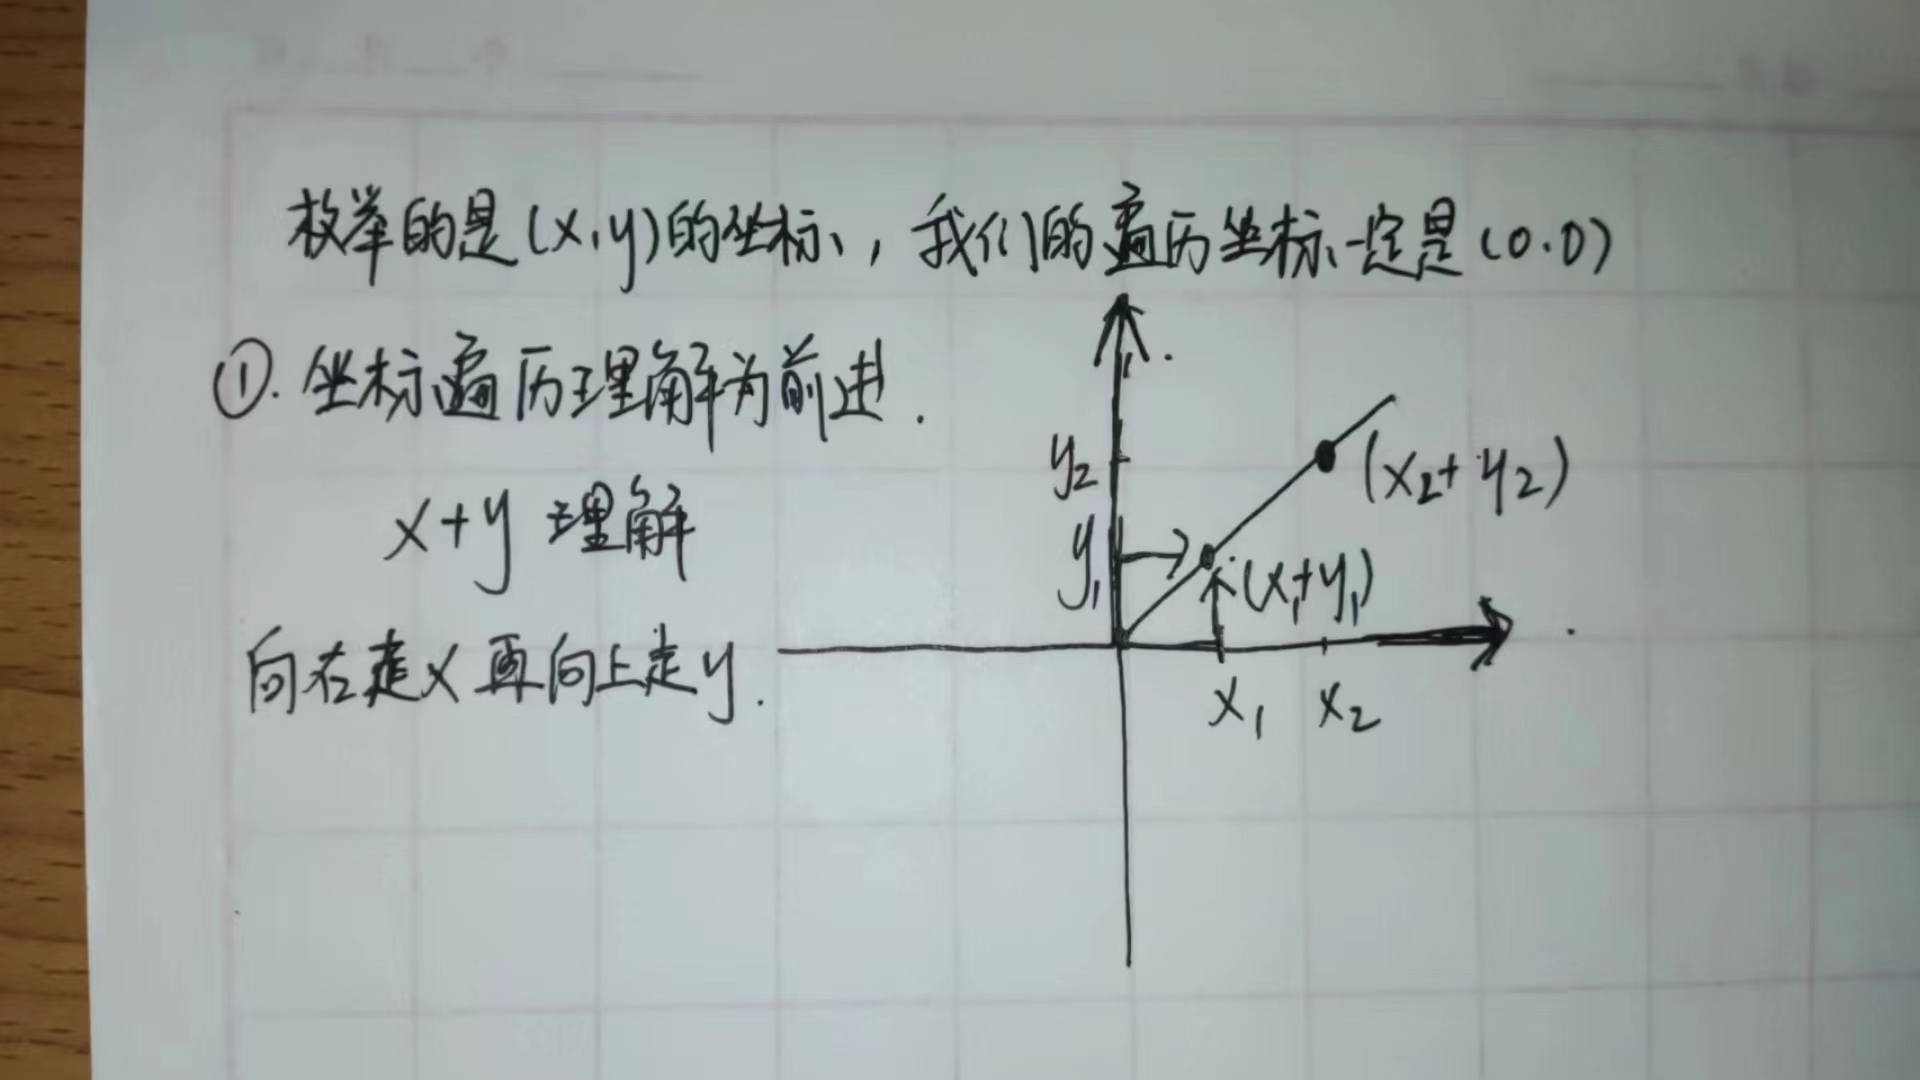 枚举的是(x,y)的坐标,我们的遍历坐标一定是(0.0)
①.坐标遍历理解为前进.
x+y 理解
向右走x再向上走y.
y2
(x2+y2)
y1
(x1+y1)
x1 x2